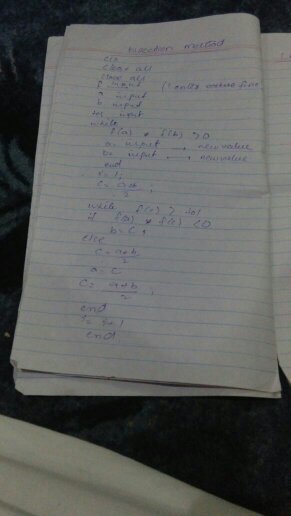 Bisection method
clc
clear all
close all
f input ('enter
a input
b input
tol input
while
f(a) * f(b) > 0
a = input → new value
b = input → new value
end
i = 1;
c = a+b/2 ;
while f(c) > tol
if f(a) * f(c) < 0
b = c ;
else
c = a+b/2
a = c
c = a+b/2 ;
end
i = i+1
end